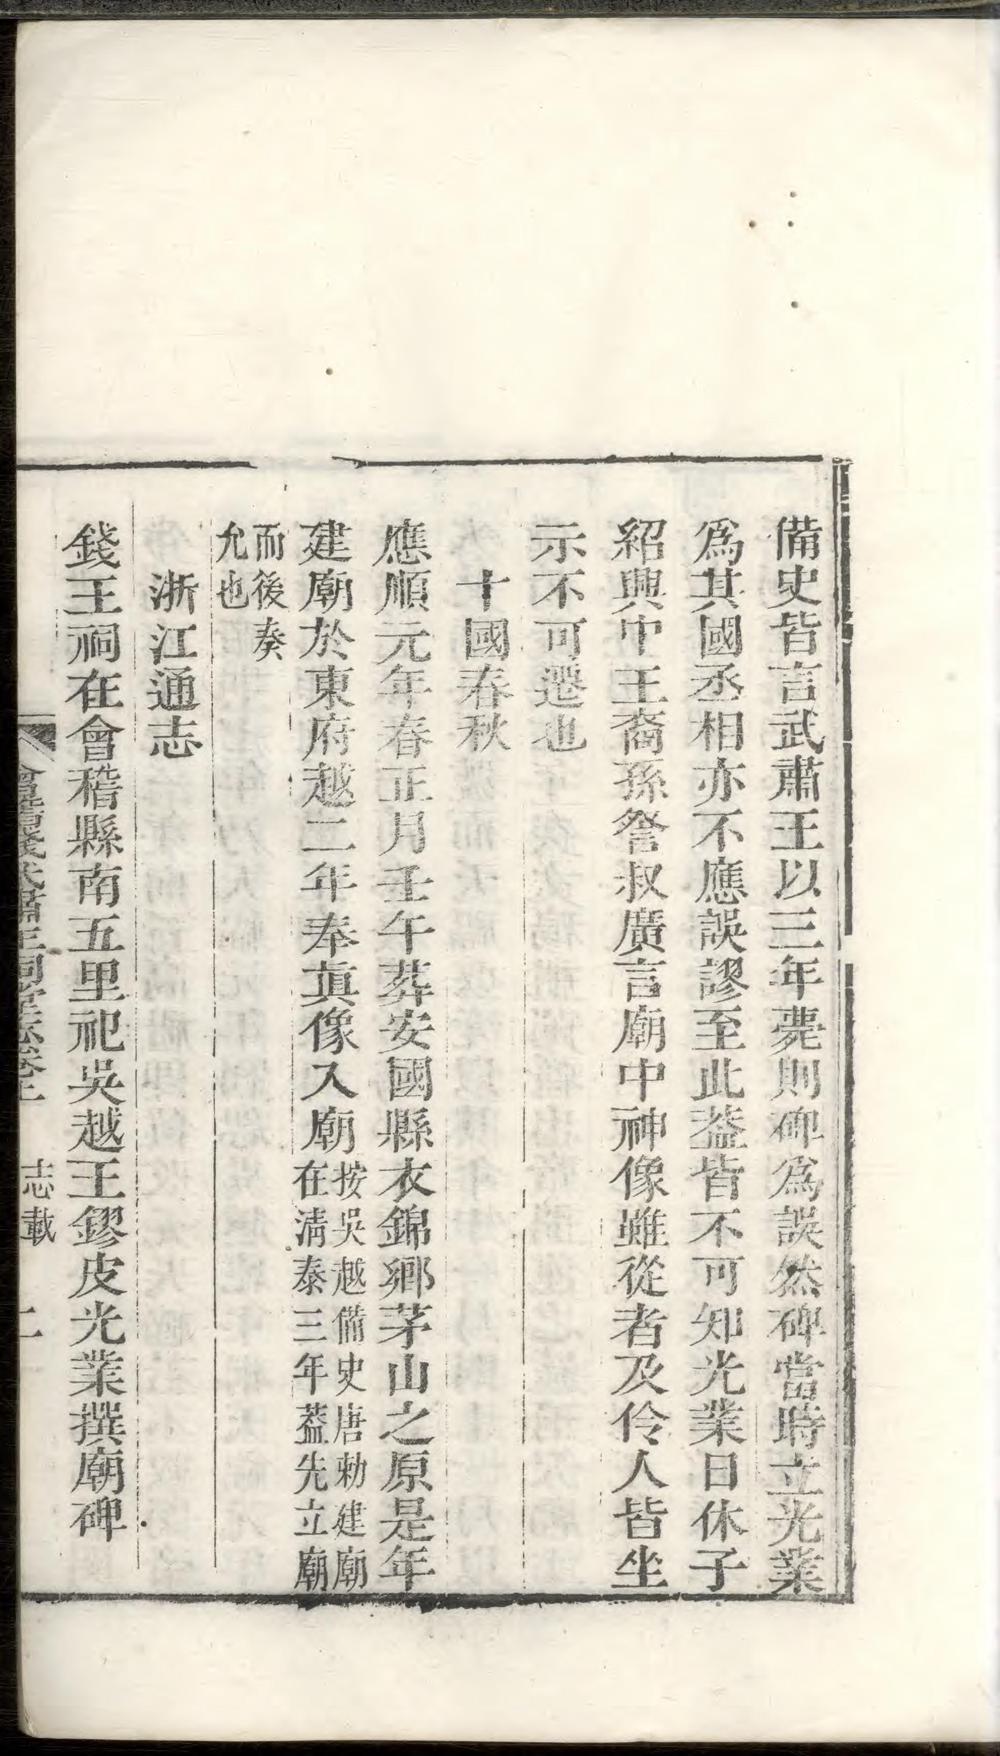 備史皆言武肅王以三年薨則碑爲誤然碑當時立光業
爲其國丞相亦不應誤謬至此葢皆不可知光業日休子
紹興中王裔孫詧叔廣言廟中神像雖從者及伶人皆坐
示不可遷也
十國春秋
應順元年春正月壬午葬安國縣衣錦鄉茅山之原是年
建廟於東府越二年奉眞像入廟按吳越備史唐勅建廟
在淸泰三年葢先立廟
而後奏
允也
浙江通志
錢王祠在會稽縣南五里祀吳越王鏐皮光業撰廟碑
會稽錢武肅王祠堂志卷上 志載 二